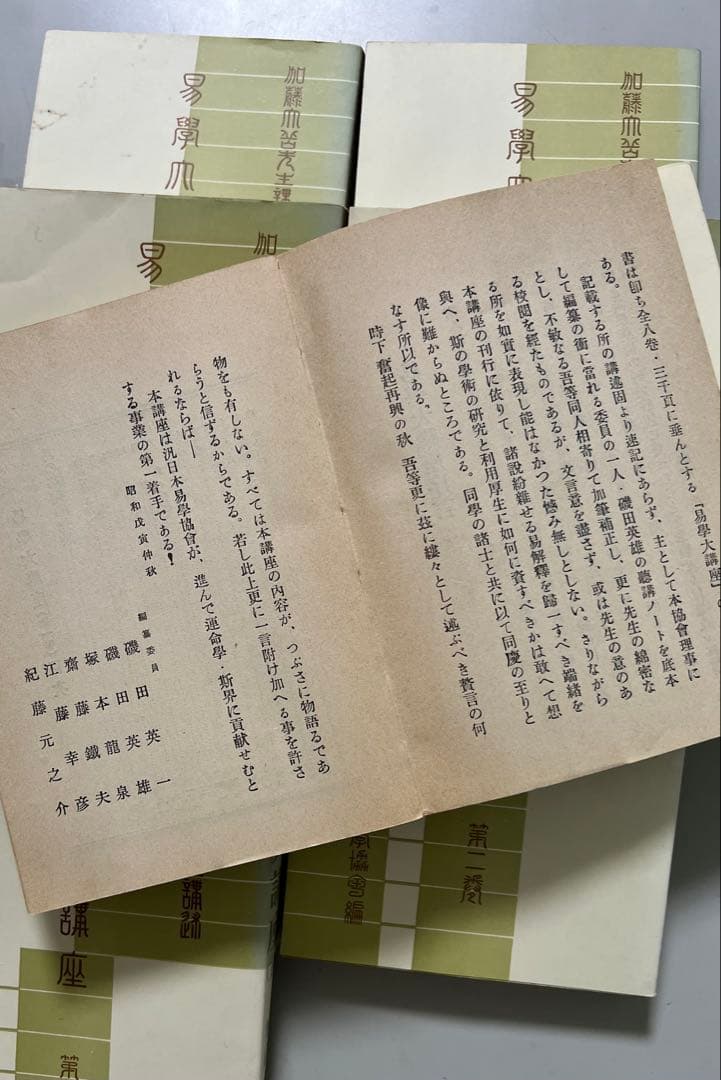 加藤大岳先生講
易學大
加藤大岳
易學
加
易
書は卽ち全八卷・三千頁に垂んとする「易學大講座」の
ある。
記載する所の講述固より速記にあらず、主として本協會理事に
して編纂の衝に當れる委員の一人・磯田英雄の聽講ノートを底本
とし、不敏なる吾等同人相寄りて加筆補正し、更に先生の綿密な
る校閲を經たものであるが、文言意を盡さず、或は先生の意のあ
る所を如實に表現し能はなかつた憾み無しとしない。さりながら
本講座の刊行に依りて、諸説紛雜せる易解釋を歸一すべき端緒を
與へ、斯の學術の研究と利用厚生に如何に資すべきかは敢へて想
像に難からぬところである。同學の諸士と共に以て同慶の至りと
なす所以である。
時下 奮起再興の秋 吾等更に茲に縷々として述ぶべき贅言の何
物をも有しない。すべては本講座の内容が、つぶさに物語るであ
らうと信ずるからである。若し此上更に一言附け加へる事を許さ
れるならば――
本講座は汎日本易學協會が、進んで運命學・斯界に貢獻せむと
する事業の第一着手である!
昭和戊寅仲秋
編纂委員
磯田英一
磯田英雄
塚本龍泉
齋藤鐵夫
江藤幸彦
紀藤元之介
第二卷
學協會編
講述
講座
第